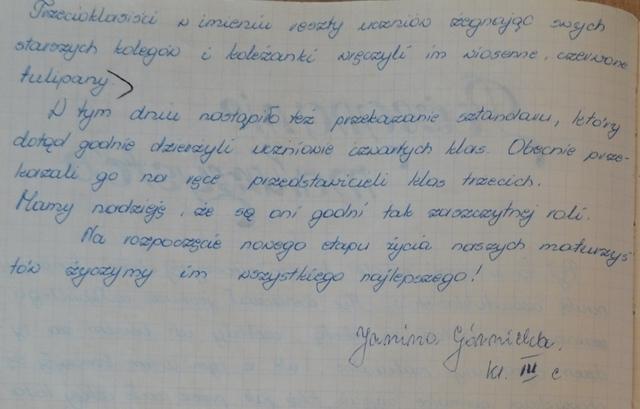 Trzecioklasiści w imieniu reszty uczniów żegnając swych
starszych kolegów i koleżanki wręczyli im wiosenne, czerwone
tulipany.
W tym dniu nastąpiło też przekazanie sztandaru, który
dotąd godnie dzierżyli uczniowie czwartych klas. Obecnie prze-
kazali go na ręce przedstawicieli klas trzecich.
Mamy nadzieję, że są oni godni tak zaszczytnej roli.
Na rozpoczęcie nowego etapu życia naszych maturzys
tów życzymy im wszystkiego najlepszego!
Janina
kl. III c